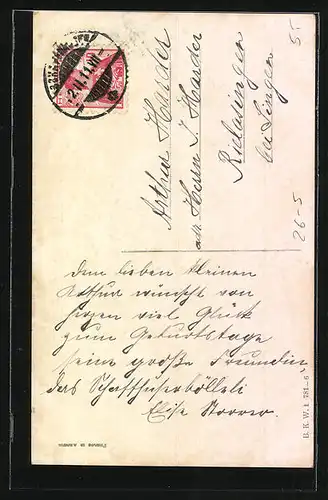 Arthur Harder
Herrn J. Harder
Rielasingen
bei Singen
55
26-5
Dem lieben kleinen
Arthur wünscht von
herzen viel Glück
zum Geburtstage
seine große Freundin
das Schaffhuserbölleli
Elise Storrer.
B. K. W. I. 781-6